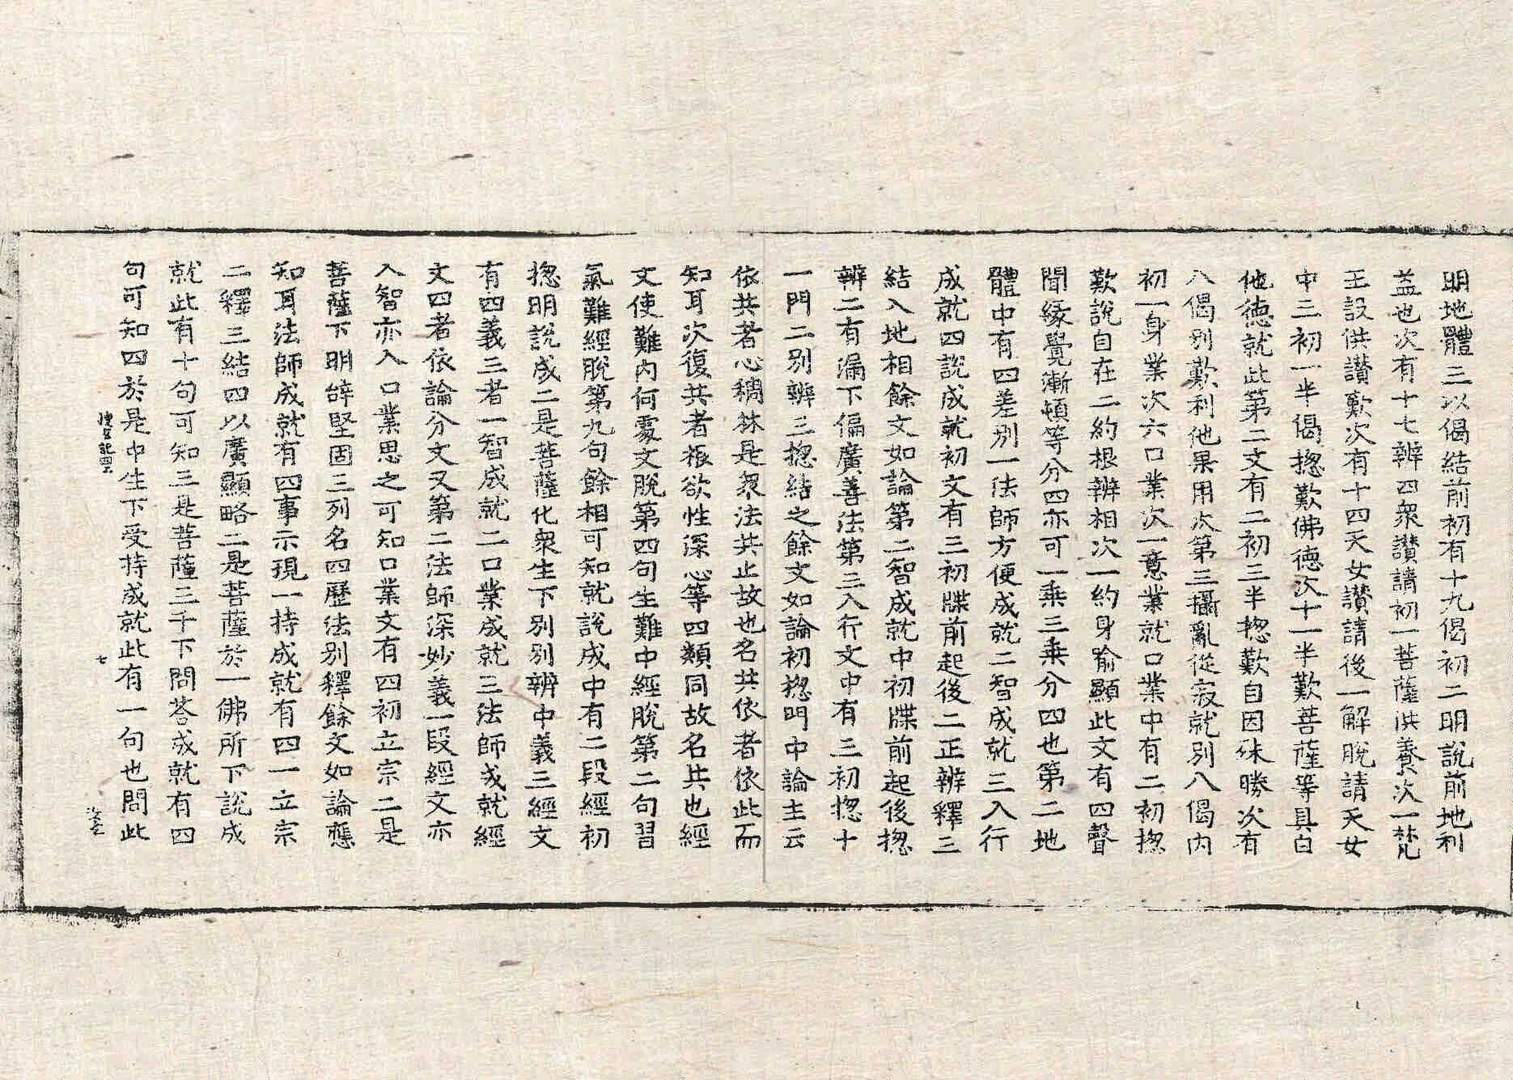 明地體三以偈結前初有十九偈初二明說前地利
益也次有十七辨四衆讃請初一菩薩洪養次一梵
王設供讃歎次有十四天女讃請後一解脫請天女
中三初一半偈揔歎佛德次十一半歎菩薩等具白
他德就此第二文有二初三半揔歎自因殊勝次有
八偈別歎利他果用次第三攝亂從寂就別八偈內
初一身業次六口業次一意業就口業中有二初揔
歎說自在二約根辨相次一約身喻顯此文有四聲
聞緣覺漸頓等分四亦可一乘三乘分四也第二地
體中有四差別一法師方便成就二智成就三入行
成就四說成就初文有三初牒前起後二正辨釋三
結入地相餘文如論第二智成就中初牒前起後揔
辨二有漏下偏廣善法第三入行文中有三初揔十
一門二別辨三揔結之餘文如論初揔門中論主云
依共者心稠林是衆法共止故也名共依者依此而
知耳次復共者根欲性深心等四類同故名共也經
文使難內何處文脫第四句生難中經脫第二句習
氣難經脫第九句餘相可知就說成中有二段經初
揔明說成二是菩薩化衆生下別別辨中義三經文
有四義三者一智成就二口業成就三法師成就經
文四者依論分文又第二法師深妙義一段經文亦
入智亦入口業思之可知口業文有四初立宗二是
菩薩下明辞堅固三列名四歷法別釋餘文如論應
知耳法師成就有四事示現一持成就有四一立宗
二釋三結四以廣顯略二是菩薩於一佛所下說成
就此有十句可知三是菩薩三千下問荅成就有四
句可知四於是中生下受持成就此有一句也問此
七